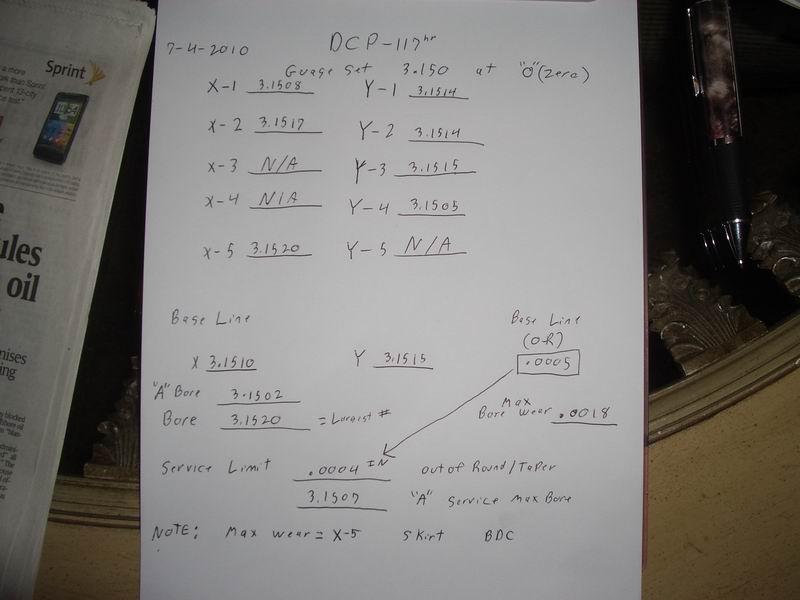 7-4-2010 DCP-117hr
Guage set 3.150 at "0" (zero)
X-1 3.1508 Y-1 3.1514
X-2 3.1517 Y-2 3.1514
X-3 N/A Y-3 3.1515
X-4 N/A Y-4 3.1505
X-5 3.1520 Y-5 N/A
Base Line
X 3.1510 Y 3.1515
Base Line
(O-R)
.0005
"A" Bore 3.1502
Bore 3.1520 = Largist #
Max
Bore wear .0018
Service Limit .0004 IN out of Round/Taper
3.1507 "A" Service Max Bore
NOTE: Max wear = X-5 Skirt BDC
Sprint
a more
than Sprint
13-city
test."
ules
oil
nises
ing
blocked